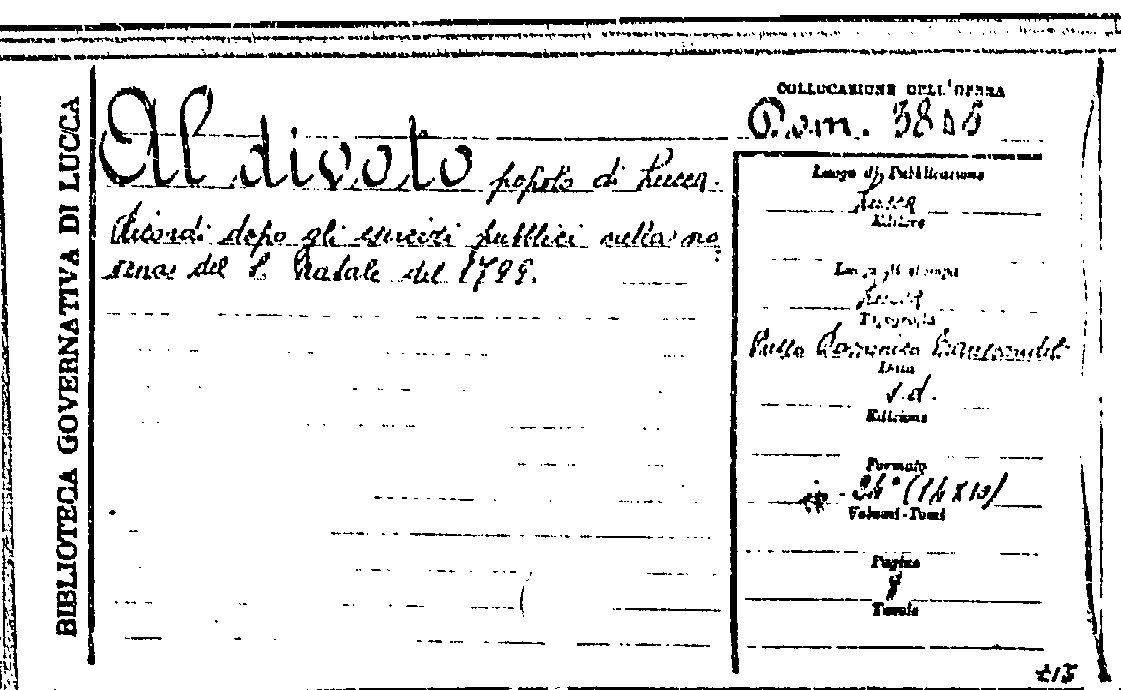 BIBLIOTECA GOVERNATIVA DI LUCCA
COLLOCAZIONE DELL'OPERA
Al divoto popolo di Lucca.
Ricordi dopo gli esercizi pubblici nella no
vena del S. Natale del 1799.
Luogo di Pubblicazione
Lucca
Editore
Luogo di stampa
Lucca
Tipografia
Domenico
Data
s.d.
Edizione
Formato
24° (14x10)
Volumi-Tomi
Pagine
Tavole